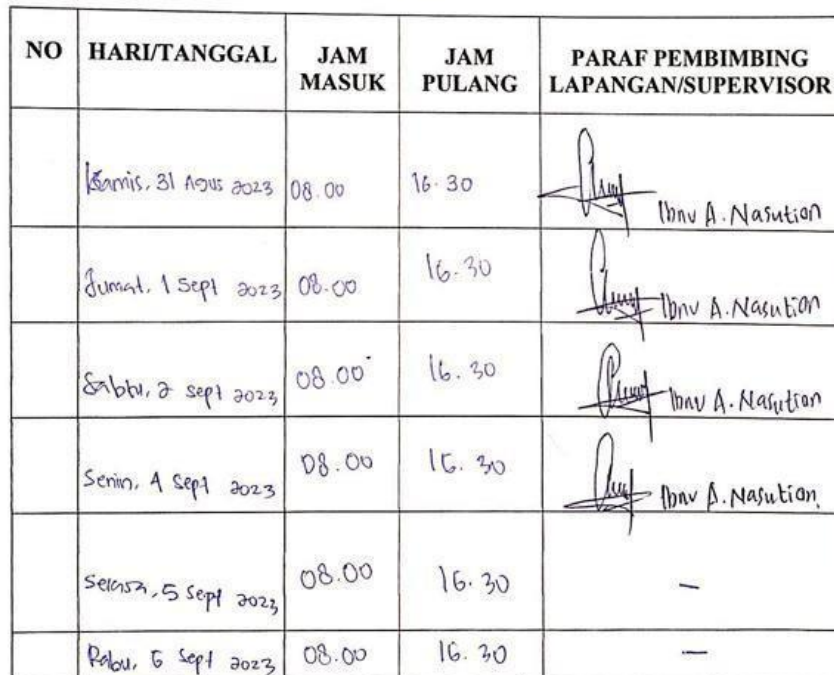 NO HARI/TANGGAL JAM MASUK JAM PULANG PARAF PEMBIMBING LAPANGAN/SUPERVISOR
Kamis, 31 Agus 2023 08.00 16.30 Ibnu A. Nasution
Jumat, 1 Sept 2023 08.00 16.30 Ibnu A. Nasution
Sabtu, 2 Sept 2023 08.00 16.30 Ibnu A. Nasution
Senin, 4 Sept 2023 08.00 16.30 Ibnu A. Nasution
Selasa, 5 Sept 2023 08.00 16.30 –
Rabu, 6 Sept 2023 08.00 16.30 –